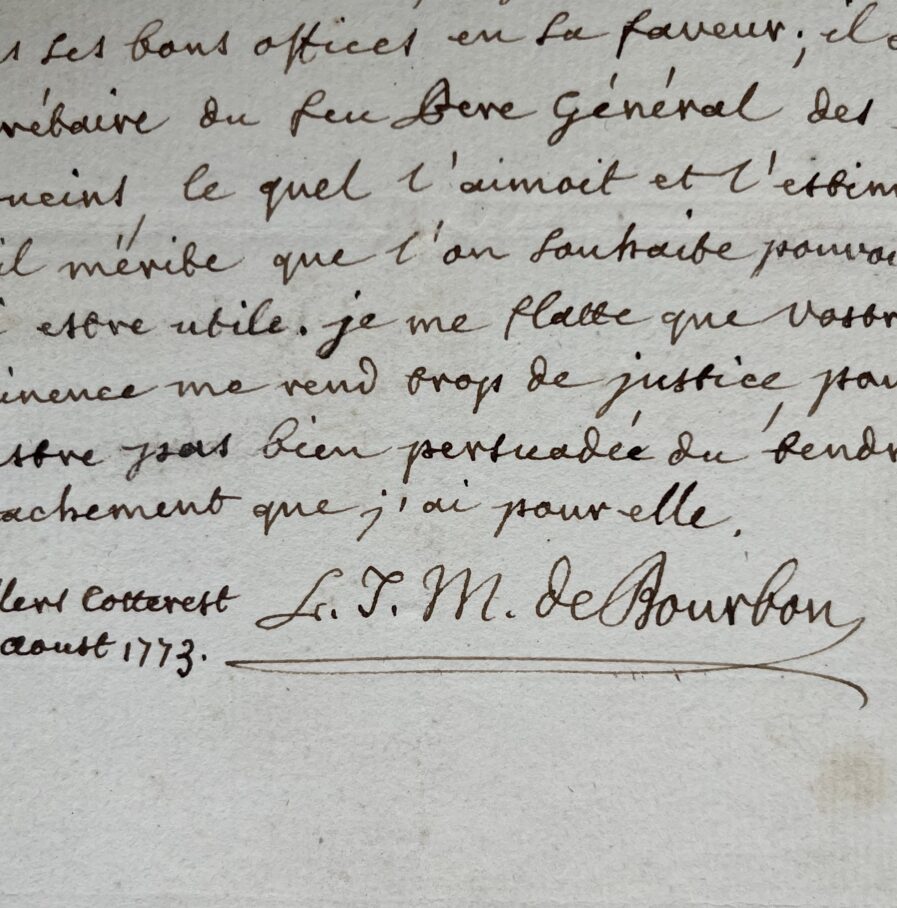 ses bons offices en sa faveur; il
rétaire du feu Pere Général des
ucins, le quel l'aimoit et l'estim
il mérite que l'on souhaite pouvoi
estre utile. je me flatte que Vostr
inence me rend trop de justice, pou
stre pas bien persuadée du tendr
achement que j'ai pour elle.
llers Cotterest L. J. M. de Bourbon
aoust 1773.